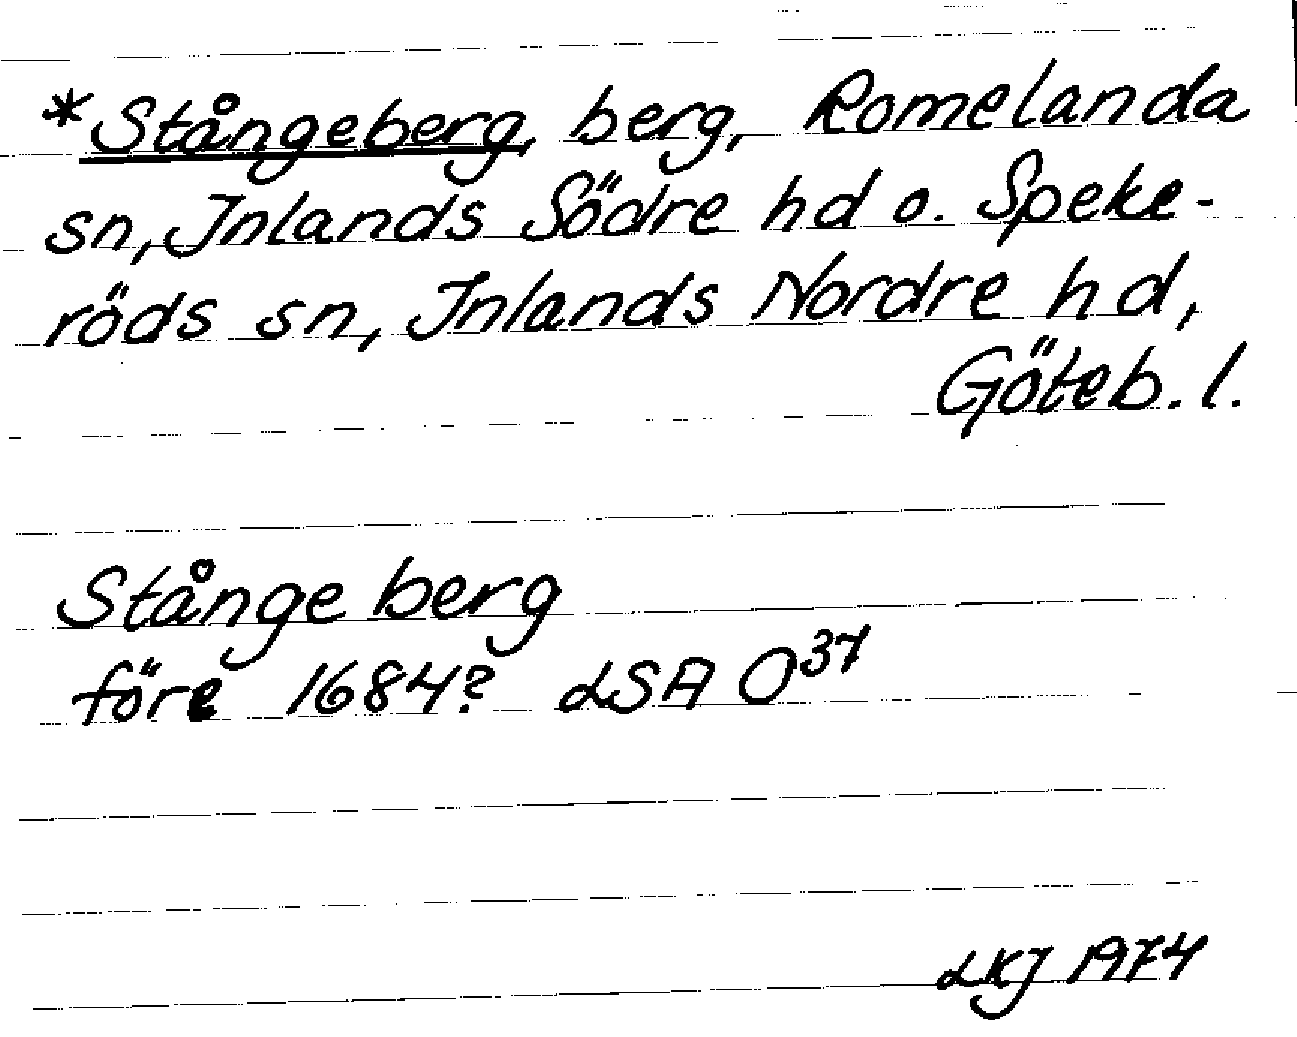 *Stångeberg, berg, Romelanda
sn, Inlands Södre hd o. Speke-
röds sn, Inlands Nordre hd,
Göteb. l.
Stångeberg
före 1684? LSA O³⁷
LKJ 1974